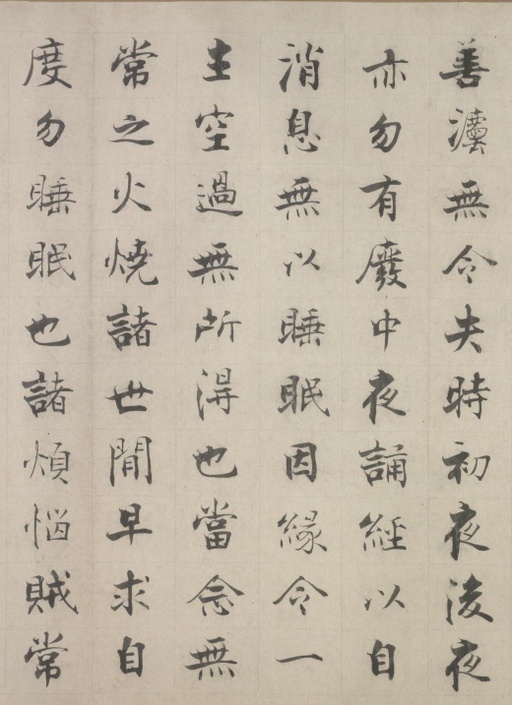 善灋無令失時初夜後夜
亦勿有廢中夜誦經以自
消息無以睡眠因緣令一
生空過無所得也當念無
常之火燒諸世間早求自
度勿睡眠也諸煩惱賊常